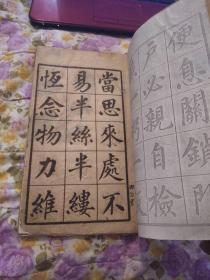 便息關鎖門
戶必親自檢
當思來處不
易半絲半縷
恆念物力維